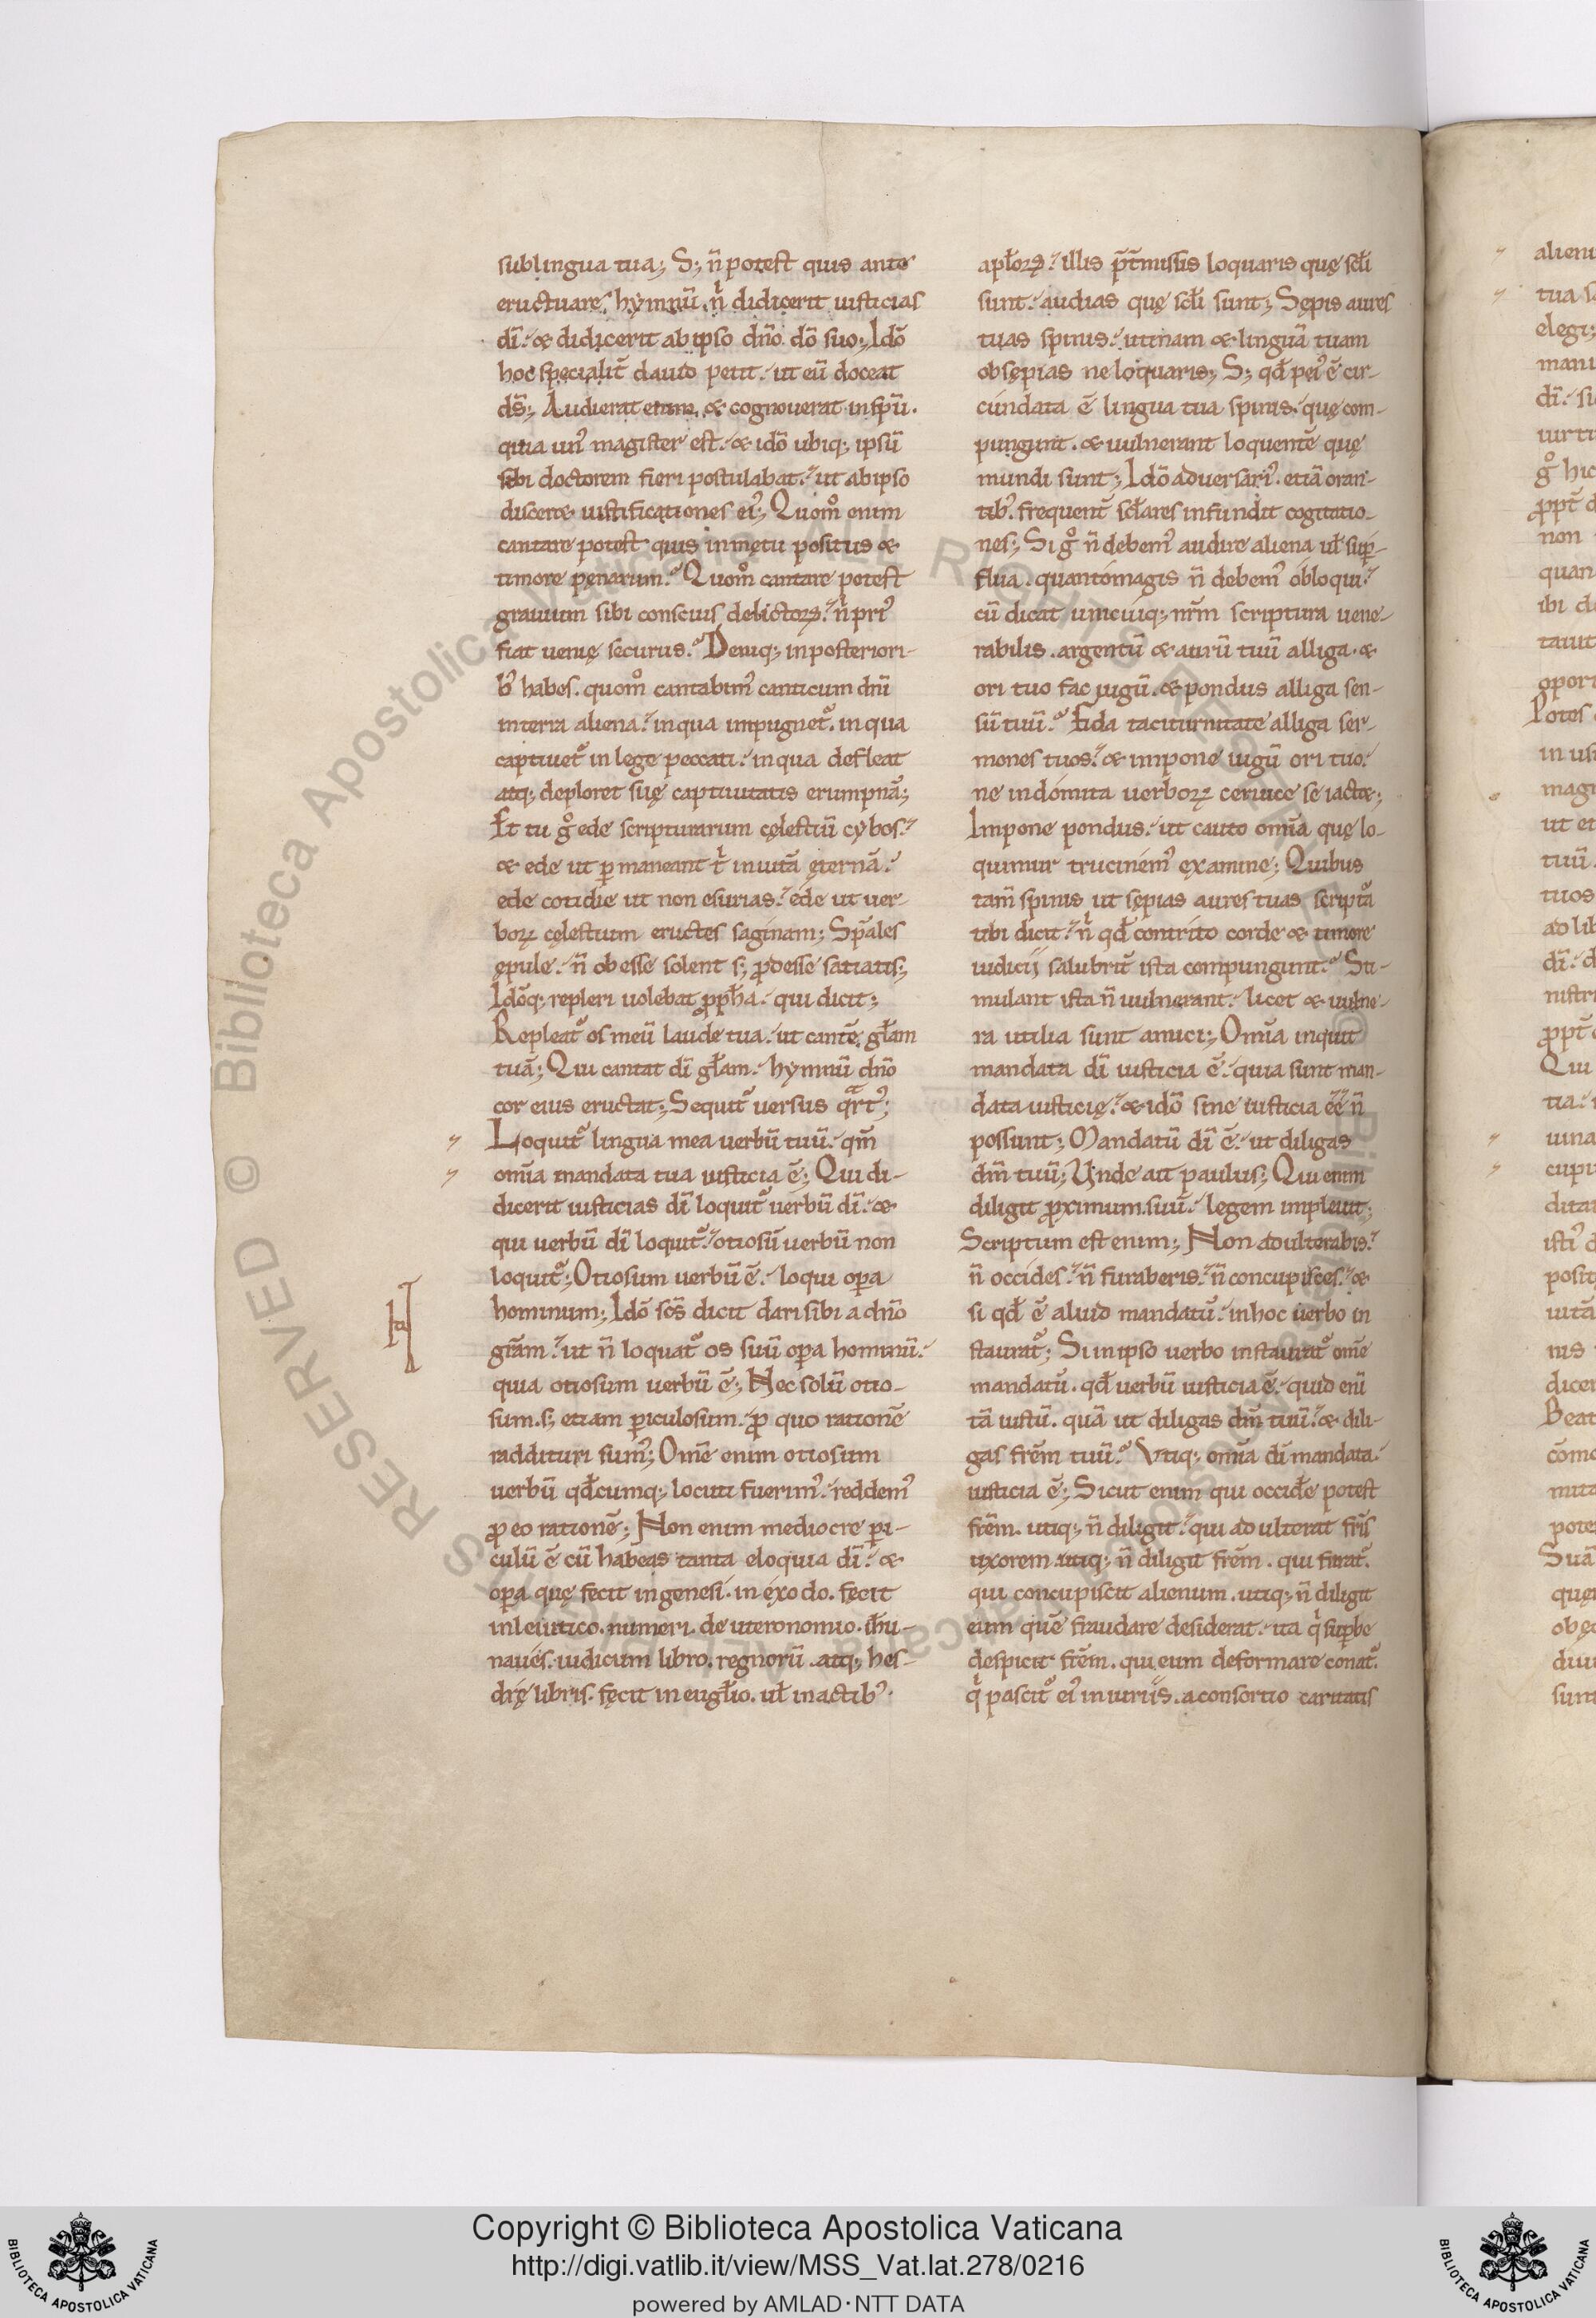 sub lingua tua; S; n̄ potest quis ante
eructuare hẏmnū. nͥ didicerit iusticias
dī. & didicerit ab ipso dn̄o dō suo; Idō
hoc specialit̄ dauid petit. ut eū doceat
ds̄; Audierat enim. & cognouerat in sp̄u.
quia un᾿ magister est. & idō ubiq; ipsū
sibi doctorem fieri postulabat. ut ab ipso
disceret iustificationes ei᾿; Quom̊ enim
cantare potest quis in metu positus &
timore pęnarum. Quom̊ cantare potest
grauium sibi conscius delictoꝝ. nͥ pri᾿
fiat uenię securus. Deniq; in posteriori-
b᾿ habes. quom̊ cantabim᾿ canticum dn̄i
in terra aliena. in qua impugnet᷑. in qua
captiuet᷑ in lege peccati. in qua defleat
atq; deploret suę captiuitatis erumpnā;
Et tu g̊ ede scripturarum cęlestiū cẏbos.
& ede ut ꝑmaneant tͥ in uitā ęternā.
ede cotidie ut non esurias. ede ut uer-
boꝝ cęlestium eructes saginam; Sp̄ales
ępule. n̄ obesse solent s; ꝓdesse satiatis;
Idōq; repleri uolebat ꝓph̄a. qui dicit;
Repleat᷑ os meū laude tua. ut cantē gl̄am
tuā; Qui cantat dī gl̄am. hẏmnū dn̄o
cor eius eructat; Sequit᷑ uersus qͣrt᾿;
Loquit᷑ lingua mea uerbū tuū. qm̄
om̄ia mandata tua iusticia ē; Qui di-
dicerit iusticias dī loquit᷑ uerbū dī. &
qui uerbū dī loquit᷑. otiosū uerbū non
loquit᷑; Otiosum uerbū ē. loqui oꝑa
hominum; Idō sc̄s dicit dari sibi a dn̄o
gr̄am. ut n̄ loquat᷑ os suū oꝑa hominū.
quia otiosum uerbū ē; Nec solū otio-
sum. s; etiam ꝑiculosum. ꝓ quo rationē
raddituri sum᾿; Om̄e enim otiosum
uerbū qd̄cumq; locuti fuerim᾿. reddem᾿
ꝓ eo rationē; Non enim mediocre ꝑi-
culū ē cū habeas tanta eloquia dī. &
oꝑa quę fecit in genesi. in exodo. fecit
in leiutico. numeri. deuteronomio. ih̄u
naues. iudicum libro. regnorū. atq; hes-
drę libris. fęcit in eugl̄io. ul̄ in actib᾿
apl̄oꝝ. illis p̄t̄missis loquaris quę scl̄i
sunt. audias quę scl̄i sunt; Sępis aures
tuas spinis. utinam & linguā tuam
obsępias ne loquaris; S; qd̄ pei᾿ ē cir-
cundata ē lingua tua spinis. quę com-
pungunt. & uulnerant loquentē quę
mundi sunt; Idō aduersari᾿. etiā oran-
tib᾿. frequent̄ scl̄ares infundit cogitatio-
nes; Si g̊ n̄ debem᾿ audire aliena ul̄ suꝑ-
flua. quantomagis n̄ debem᾿ obloqui.
cū dicat unicuiq; nr̄m scriptura uene-
rabilis. argentū & aurū tuū alliga. &
ori tuo fac iugū. & pondus alliga sen-
sū tuū. Fida taciturnitate alliga ser-
mones tuos. & impone iugū ori tuo.
ne indómita uerboꝝ ceruice se iactet;
Impone pondus. ut cauto om̄ia quę lo-
quimur trucinem᾿ examine; Quibus
tam̄ spinis ut sępias aures tuas scriptᷓa
tibi dicit. nͥ qd̄ contrito corde & timore
iudicij salubrit̄ ista compungunt. Sti-
mulant ista n̄ uulnerant. licet & uulne-
ra utilia sunt amici; Om̄ia inquit
mandata dī iusticia ē. quia sunt man-
data iusticię. & idō sine iusticia ēē n̄
possunt; Mandatū dī ē. ut diligas
dm̄ tuū; Unde ait paulus; Qui enim
diligit ꝓximum suū. legem impleuit;
Scriptum est enim; Non adulterabis.
n̄ occides. n̄ furaberis. n̄ concupisces. &
si qd̄ ē aliud mandatū. in hoc uerbo in
staurat᷑; Si in ipso uerbo instaurat᷑ om̄e
mandatū. qd̄ uerbū iusticia ē. quid enī
tā iustū. quā ut diligas dm̄ tuū. & dili-
gas frēm tuū. Vtiq; om̄ia dī mandata
iusticia ē; Sicut enim qui occid̄e potest
frēm. utiq; n̄ diligit. qui adulterat fr̄is
uxorem. utiq; n̄ diligit frēm. qui furat᷑.
qui concupiscit alienum. utiq; n̄ diligit
eum quē fraudare desiderat. ita qͥ suꝑbe
despicit frēm. qui eum deformare conat᷑.
qͥ pascit᷑ ei᾿ iniuriis. a consortio caritatis
Copyright © Biblioteca Apostolica Vaticana
http://digi.vatlib.it/view/MSS_Vat.lat.278/0216
powered by AMLAD·NTT DATA
BIBLIOTECA APOSTOLICA VATICANA
BIBLIOTECA APOSTOLICA VATICANA